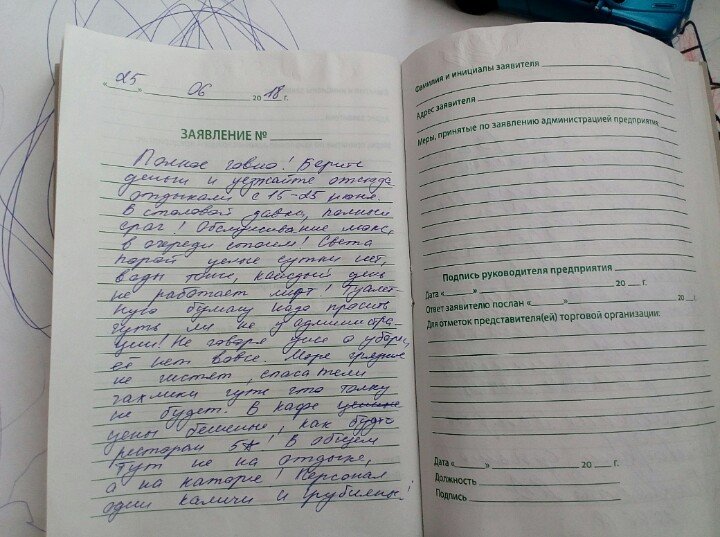 «25» 06 2018 г.
ЗАЯВЛЕНИЕ №
Полное говно! Берите
деньги и уезжайте отсюда
отдыхали с 15-25 июня.
В столовой давка, полный
срач! Обслуживание мокс,
в очереди стоим! Света
порой целые сутки нет,
воды тоже, каждый день
не работает лифт! Туалет-
ную бумагу надо просить
чуть ли не у администра-
ции! Не говоря уже о уборке,
её нет вовсе. Море грязное
не чистят, спасатели
гахлики чуть что толку
не будет. В кафе
цены бешеные, как будто
ресторан 5*! В общем
тут не на отдыхе,
а на каторге! Персонал
одни каличи и грубияны!
Фамилия и инициалы заявителя
Адрес заявителя
Меры, принятые по заявлению администрацией предприятия
Подпись руководителя предприятия
Дата «    »            20    г.
Ответ заявителю послан «    »            20    г.
Для отметок представителя(ей) торговой организации:
Дата «    »            20    г.
Должность
Подпись